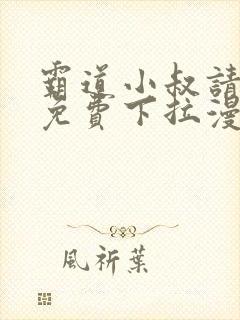 霸道小叔請
免費下拉漫
風祈葉